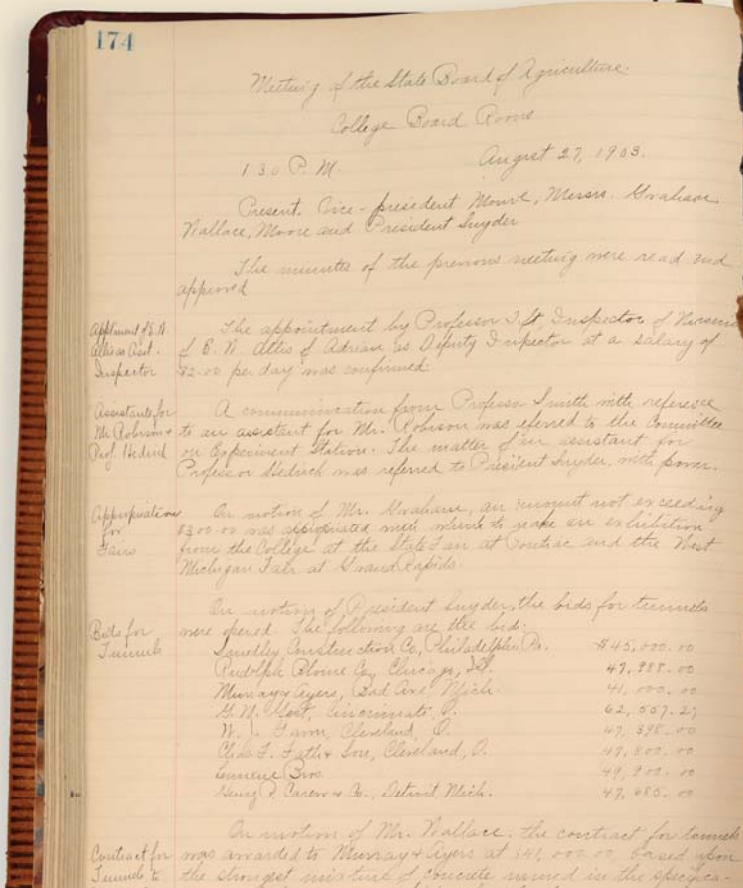 174
Meeting of the State Board of Agriculture.
College Board Rooms
1 30 P. M. August 27, 1903.
Present. Vice-president Monroe, Messrs. Graham
Wallace, Moore and President Snyder
The minutes of the previous meeting were read and
approved
of E. N. Allis as Asst. Inspector
The appointment by Professor Taft, Inspector of
of E. N. Allis of Adrian as Deputy Inspector at a salary of
$2.00 per day was confirmed.
Assistants for Mr Robison & Prof. Hedrick
A communication from Professor Smith with reference
to an assistant for Mr. Robison was referred to the Committee
on Experiment Station. The matter of an assistant for
Professor Hedrick was referred to President Snyder, with power.
Appropriation for Fairs
On motion of Mr. Graham, an amount not exceeding
$300.00 was appropriated with which to make an exhibition
from the College at the State Fair at Pontiac and the West
Michigan Fair at Grand Rapids.
Bids for Tunnels
On motion of President Snyder, the bids for tunnels
were opened. The following are the bids:
Construction Co, Philadelphia Pa. $45,000.00
Rudolph Blome Co, Chicago, Ill.
Murray & Ayers, Bad Axe, Mich. 41,000.00
Cincinnati, O. 62,557.27
W. J. Cleveland, O. 47,398.00
Chas. F. & Son, Cleveland, O. 47,800.00
Bros.
& Co., Detroit Mich. 47,685.00
Contract for Tunnels to
On motion of Mr. Wallace, the contract for tunnels
was awarded to Murray & Ayers at $41,000.00, based upon
the strongest mixture of concrete named in the specifica-